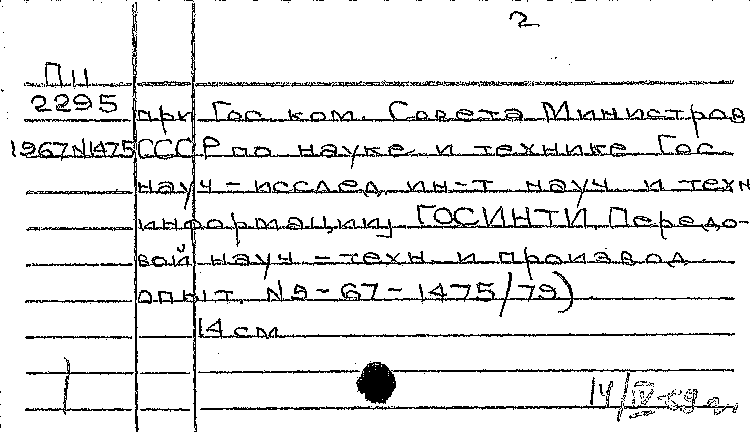 2
ПII
2295 при Гос. ком. Совета Министров
1967 N1475 СССР по науке и технике Гос.
науч-исслед. ин-т науч и техн
информации, ГОСИНТИ. Передо-
вой науч-техн. и производ.
опыт. N 9-67-1475/79)
14 см
14/IV-69 г.